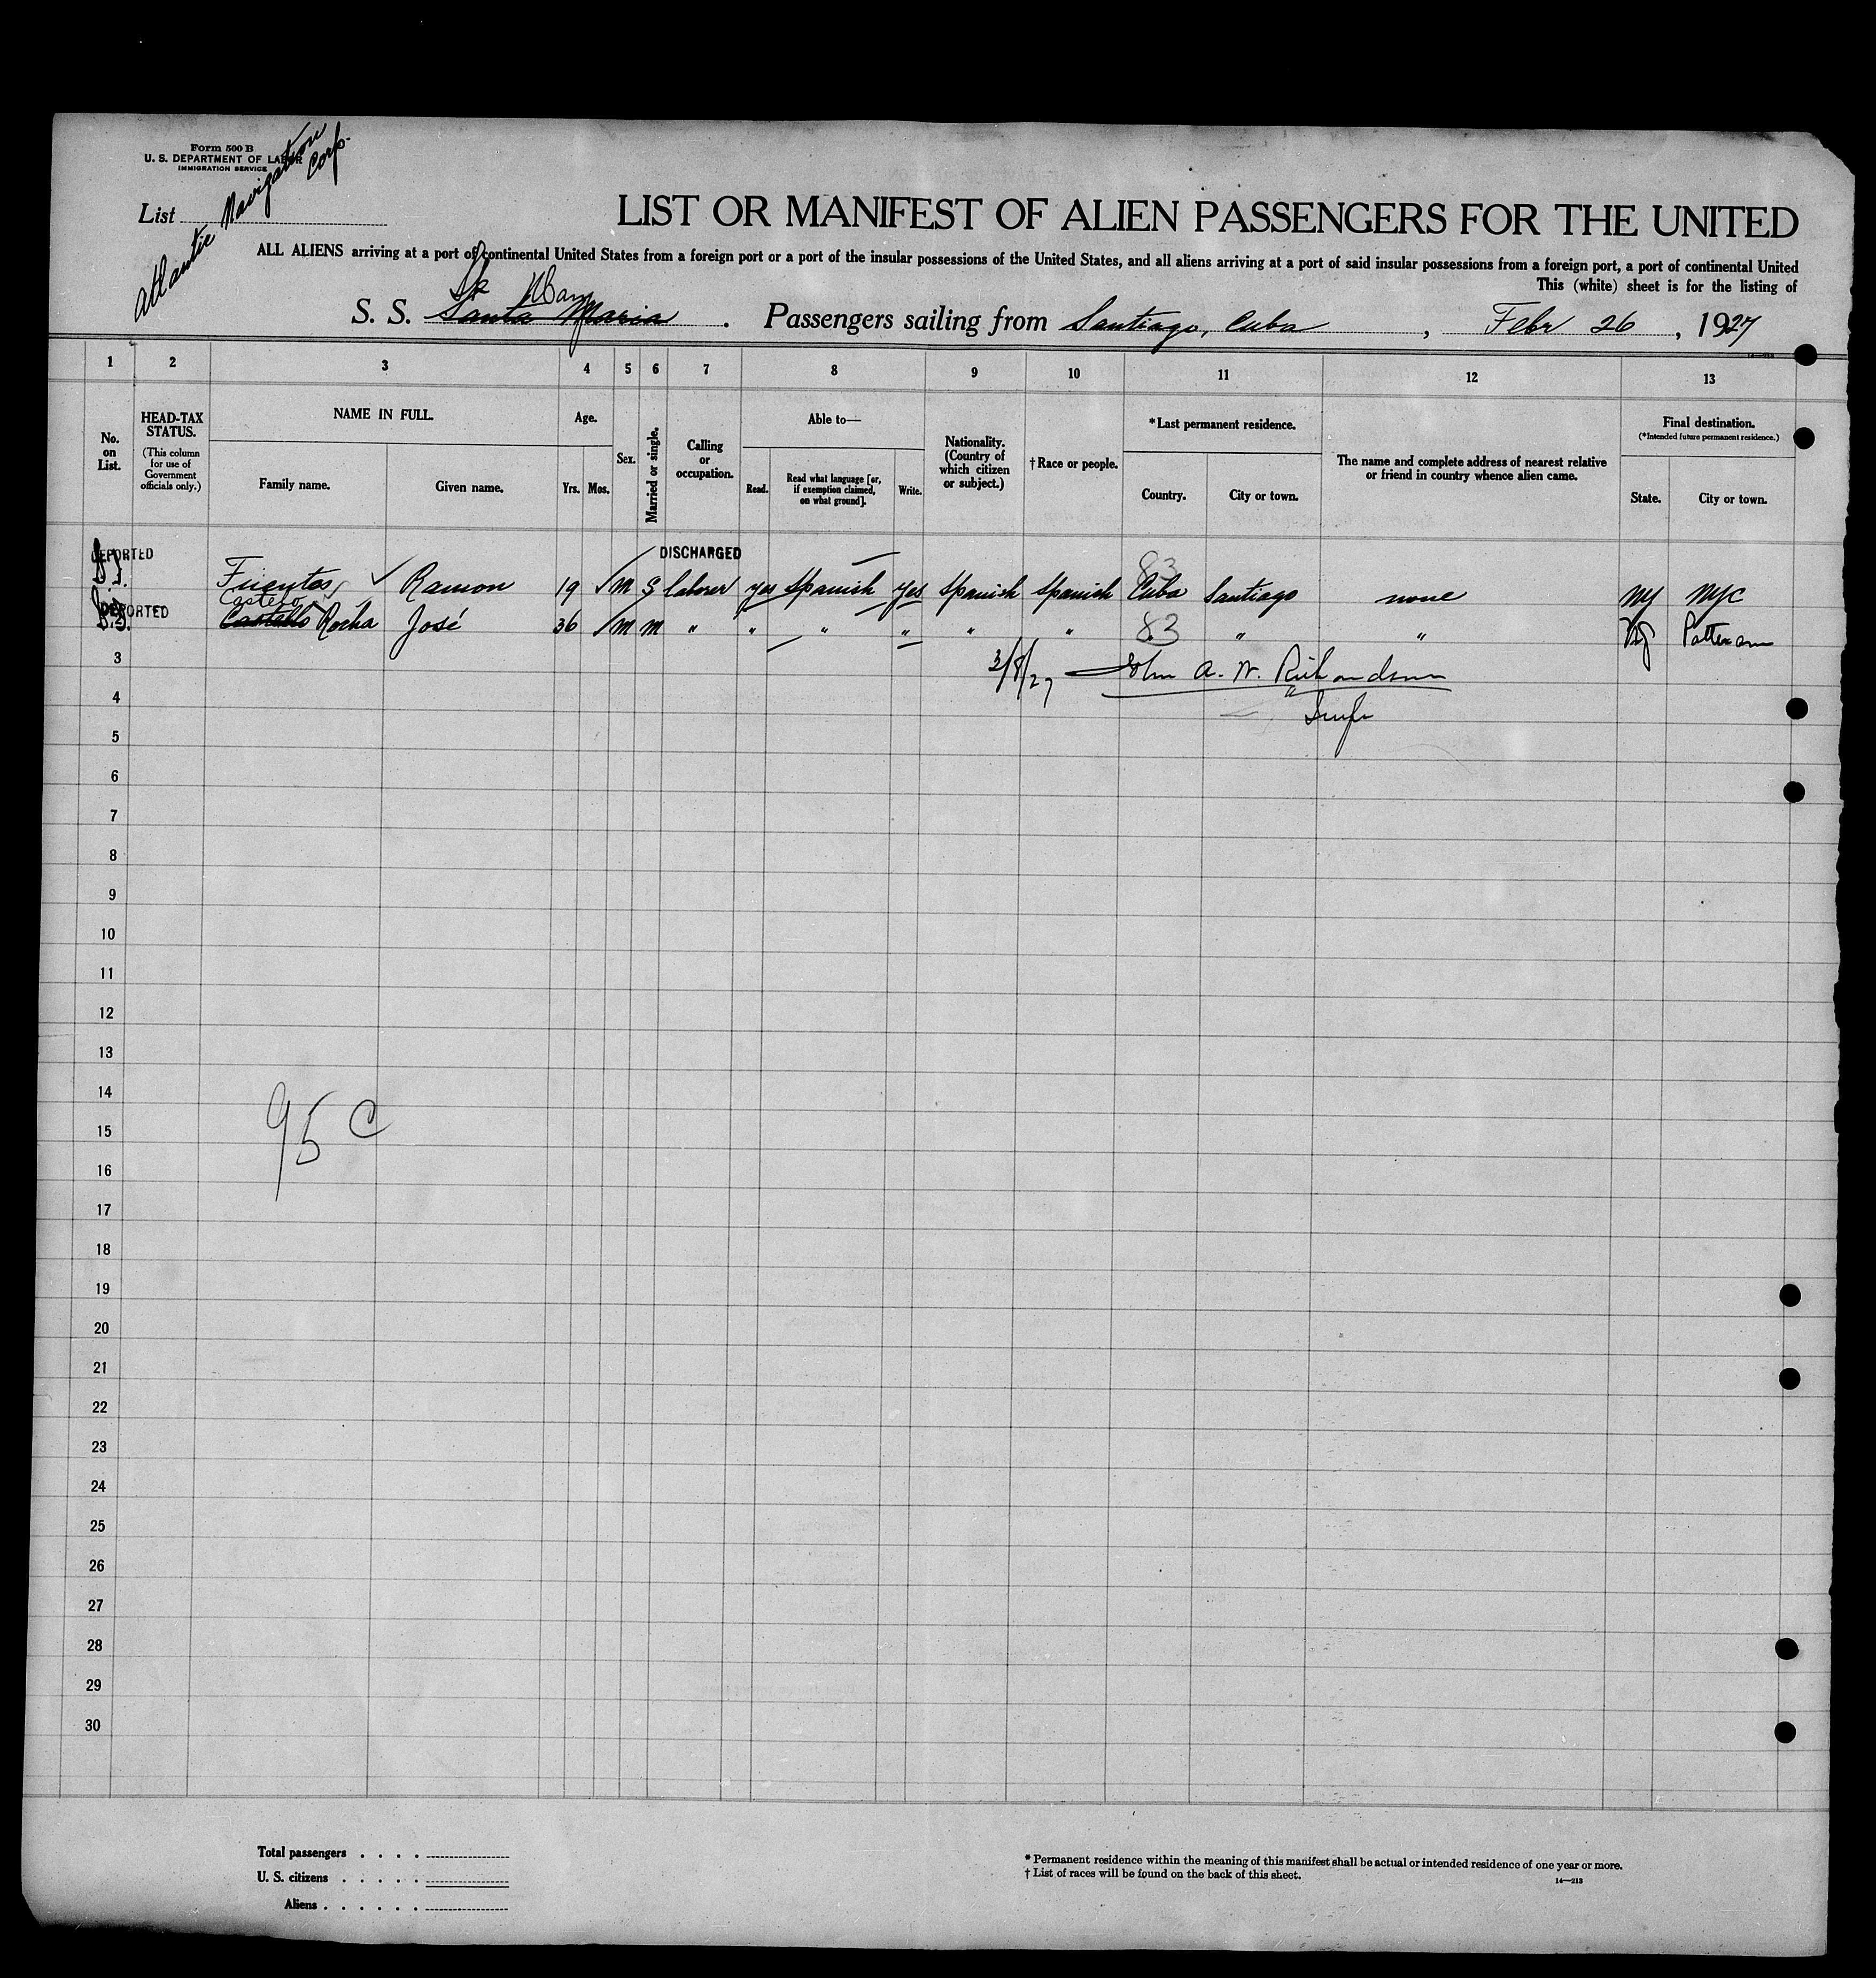 Form 500 B
U. S. DEPARTMENT OF LABOR
IMMIGRATION SERVICE
Atlantic Navigation Corp.
List
LIST OR MANIFEST OF ALIEN PASSENGERS FOR THE UNITED
ALL ALIENS arriving at a port of continental United States from a foreign port or a port of the insular possessions of the United States, and all aliens arriving at a port of said insular possessions from a foreign port, a port of continental United
This (white) sheet is for the listing of
S. S. Santa Maria . Passengers sailing from Santiago, Cuba , Febr 26 , 1927
14—213
1 2 3 4 5 6 7 8 9 10 11 12 13
No. on List.
HEAD-TAX STATUS.
(This column for use of Government officials only.)
NAME IN FULL.
Family name.
Given name.
Age.
Yrs. Mos.
Sex.
Married or single.
Calling or occupation.
Able to—
Read.
Read what language [or, if exemption claimed, on what ground].
Write.
Nationality. (Country of which citizen or subject.)
† Race or people.
* Last permanent residence.
Country.
City or town.
The name and complete address of nearest relative or friend in country whence alien came.
Final destination.
(*Intended future permanent residence.)
State.
City or town.
DEPORTED DISCHARGED 83
Fuentos Ramon 19 M S laborer yes Spanish yes Spanish Spanish Cuba Santiago none NY NYC
DEPORTED Castero
Castello Rocha José 36 M M " " " " " " 83 " " NJ Patterson
3 3/8/27 John A. W. Richardson
4
5
6
7
8
9
10
11
12
13
14
95 C
15
16
17
18
19
20
21
22
23
24
25
26
27
28
29
30
Total passengers . . . .
U. S. citizens . . . . .
Aliens . . . . . .
* Permanent residence within the meaning of this manifest shall be actual or intended residence of one year or more.
† List of races will be found on the back of this sheet.
14—213